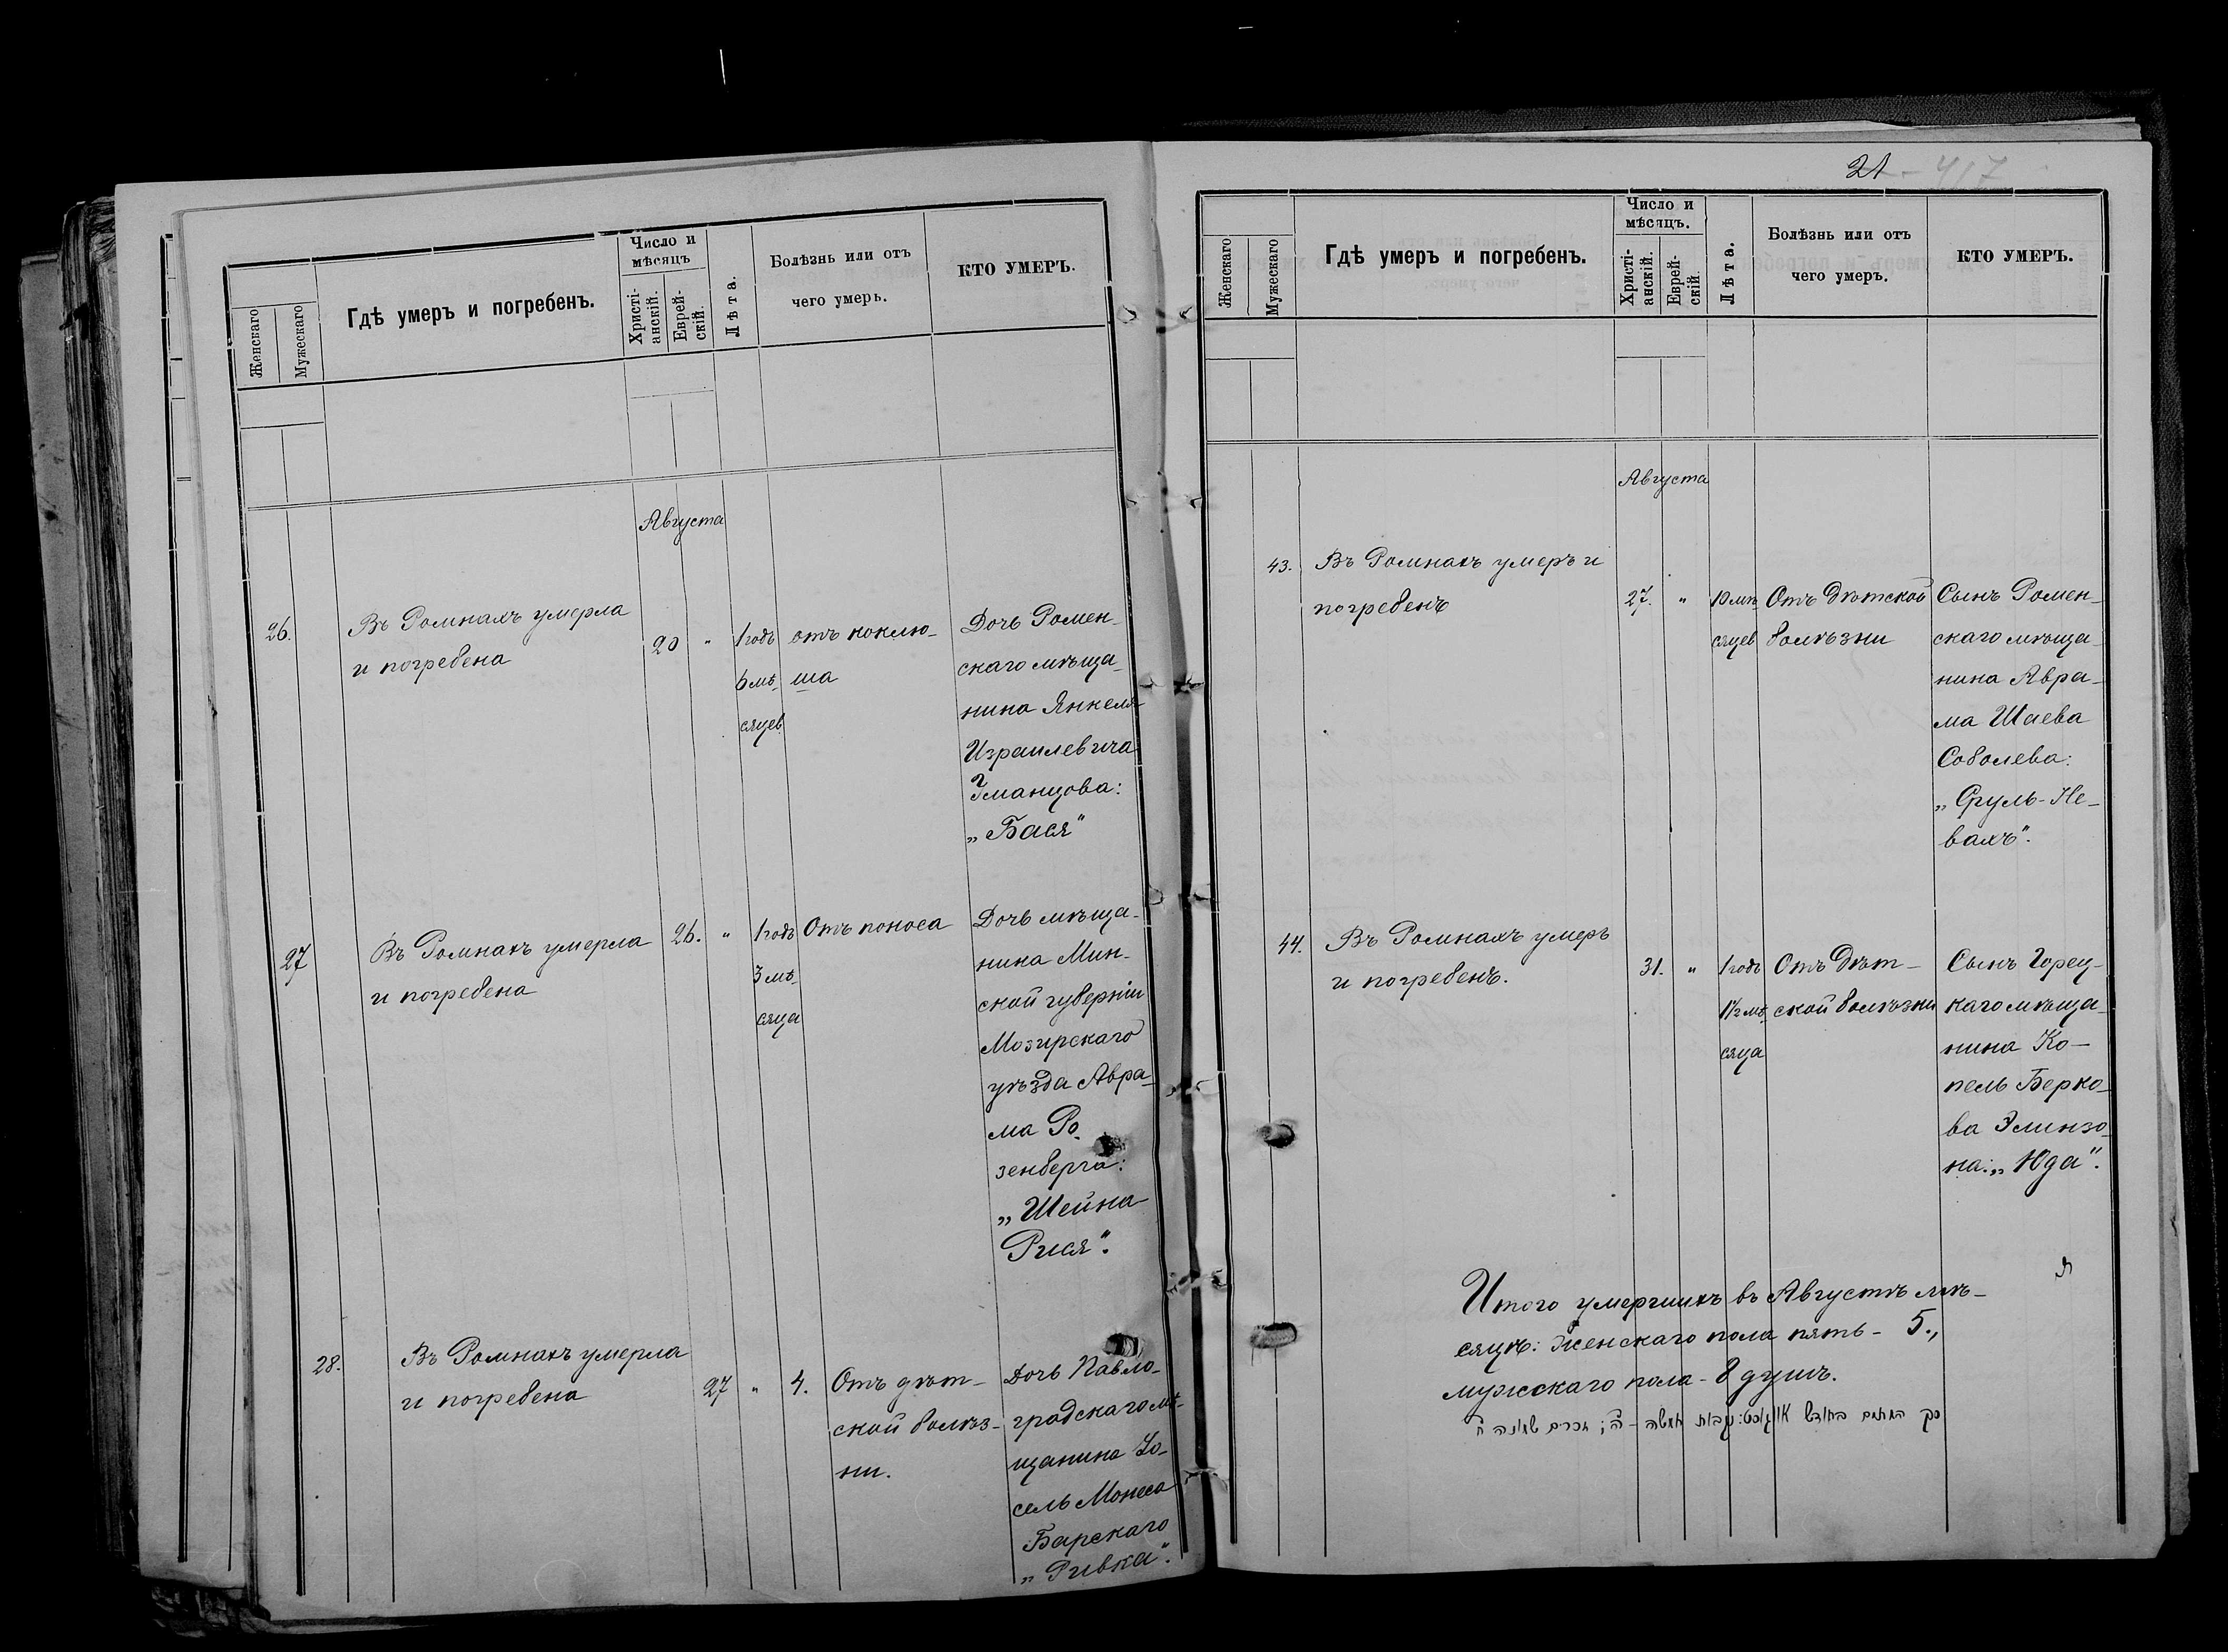 Женскаго
Мужескаго
Гдѣ умеръ и погребенъ.
Число и
мѣсяцъ
Христі-
анскій.
Еврей-
скій.
Лѣта.
Болѣзнь или отъ
чего умерь.
КТО УМЕРЪ.
Августа
26.
Въ Ромнахъ умерла
и погребена
20 "
1 годъ
6 мѣ-
сяцев
отъ коклю-
ша
Дочь Ромен-
скаго мѣща-
нина Янкеля
Израилевича
Уманцова:
„Бася"
27
Въ Ромнахъ умерла
и погребена
26. "
1 годъ
3 мѣ-
сяца
Отъ поноса
Дочь мѣща-
нина Мин-
ской губерніи
Мозирскаго
уѣзда Авра-
ма Ро-
зенберга:
„Шейна
Рися".
28.
Въ Ромнахъ умерла
и погребена
27 "
4.
Отъ дѣт-
ской болѣз-
ни.
Дочь Павло-
градскаго мѣ-
щанина Іо-
сель Монеса
Барскаго
„Ривка".
21 - 417
Женскаго
Мужескаго
Гдѣ умеръ и погребенъ.
Число и
мѣсяцъ.
Христі-
анскій.
Еврей-
скій.
Лѣта.
Болѣзнь или отъ
чего умеръ.
КТО УМЕРЪ.
Августа
43.
Въ Ромнахъ умеръ и
погребенъ
27. "
10 мѣ-
сяцев
Отъ дѣтской
болѣзни
Сынъ Ромен-
скаго мѣща-
нина Авра-
ма Шаева
Соболева:
„Сруль-Не-
вахъ".
44.
Въ Ромнахъ умеръ
и погребенъ.
31. "
1 годъ
1½ мѣ-
сяца
Отъ дѣт-
ской болѣзни
Сынъ Горец-
каго мѣща-
нина Ко-
пель Берко-
ва Элинзо-
на: „Юда".
Итого умершихъ въ Августѣ мѣ-
сяцѣ: Женскаго пола пять - 5.,
мужескаго пола - 8 душъ.
סך המתים בחודש אויגוסט: נקבות חמשה - ה; זכרים שמונה ח